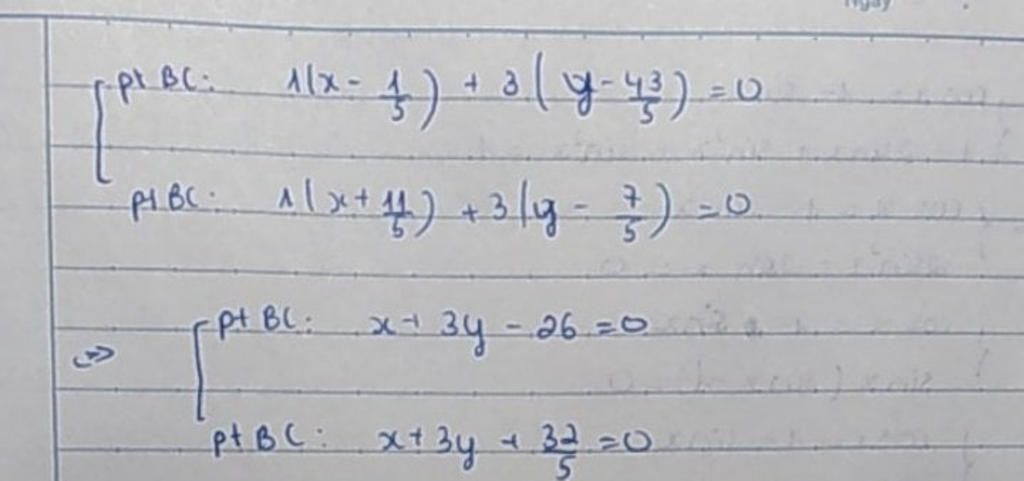 Ngày
pt BC: 1(x - 1/5) + 3(y - 43/5) = 0
pt BC: 1(x + 11/5) + 3(y - 7/5) = 0
<=> pt BC: x + 3y - 26 = 0
pt BC: x + 3y + 32/5 = 0